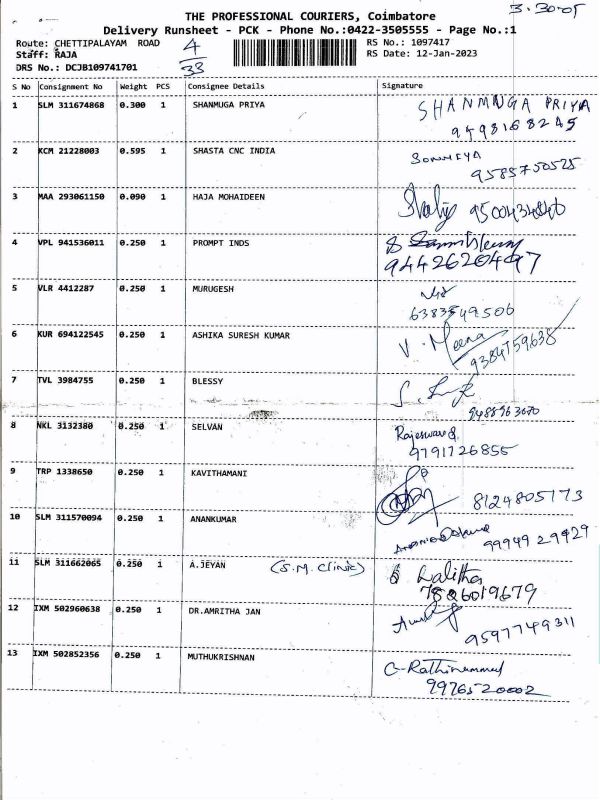 3-30-05
THE PROFESSIONAL COURIERS, Coimbatore
Delivery Runsheet - PCK - Phone No.:0422-3505555 - Page No.:1
Route: CHETTIPALAYAM ROAD 4/33 RS No.: 1097417
Staff: RAJA RS Date: 12-Jan-2023
DRS No.: DCJB109741701
S No Consignment No Weight PCS Consignee Details Signature
1 SLM 311674868 0.300 1 SHANMUGA PRIYA SHANMNGA PRIYA
9498168245
2 KCM 21228003 0.595 1 SHASTA CNC INDIA SOWMIYA
9585750525
3 MAA 293061150 0.090 1 HAJA MOHAIDEEN 9500434840
4 VPL 941536011 0.250 1 PROMPT INDS
9442620497
5 VLR 4412287 0.250 1 MURUGESH
6383549506
6 KUR 694122545 0.250 1 ASHIKA SURESH KUMAR V. Meena
9384759638
7 TVL 3984755 0.250 1 BLESSY
9488963670
8 NKL 3132380 0.250 1 SELVAN Rajeswari
9791726855
9 TRP 1338650 0.250 1 KAVITHAMANI 8124805173
10 SLM 311570094 0.250 1 ANANKUMAR
9994929929
11 SLM 311662065 0.250 1 A.JEYAN (S.M. Clinic) Lalitha
7826019679
12 IXM 502960638 0.250 1 DR.AMRITHA JAN
9597749311
13 IXM 502852356 0.250 1 MUTHUKRISHNAN C-Rathinammal
9976520002